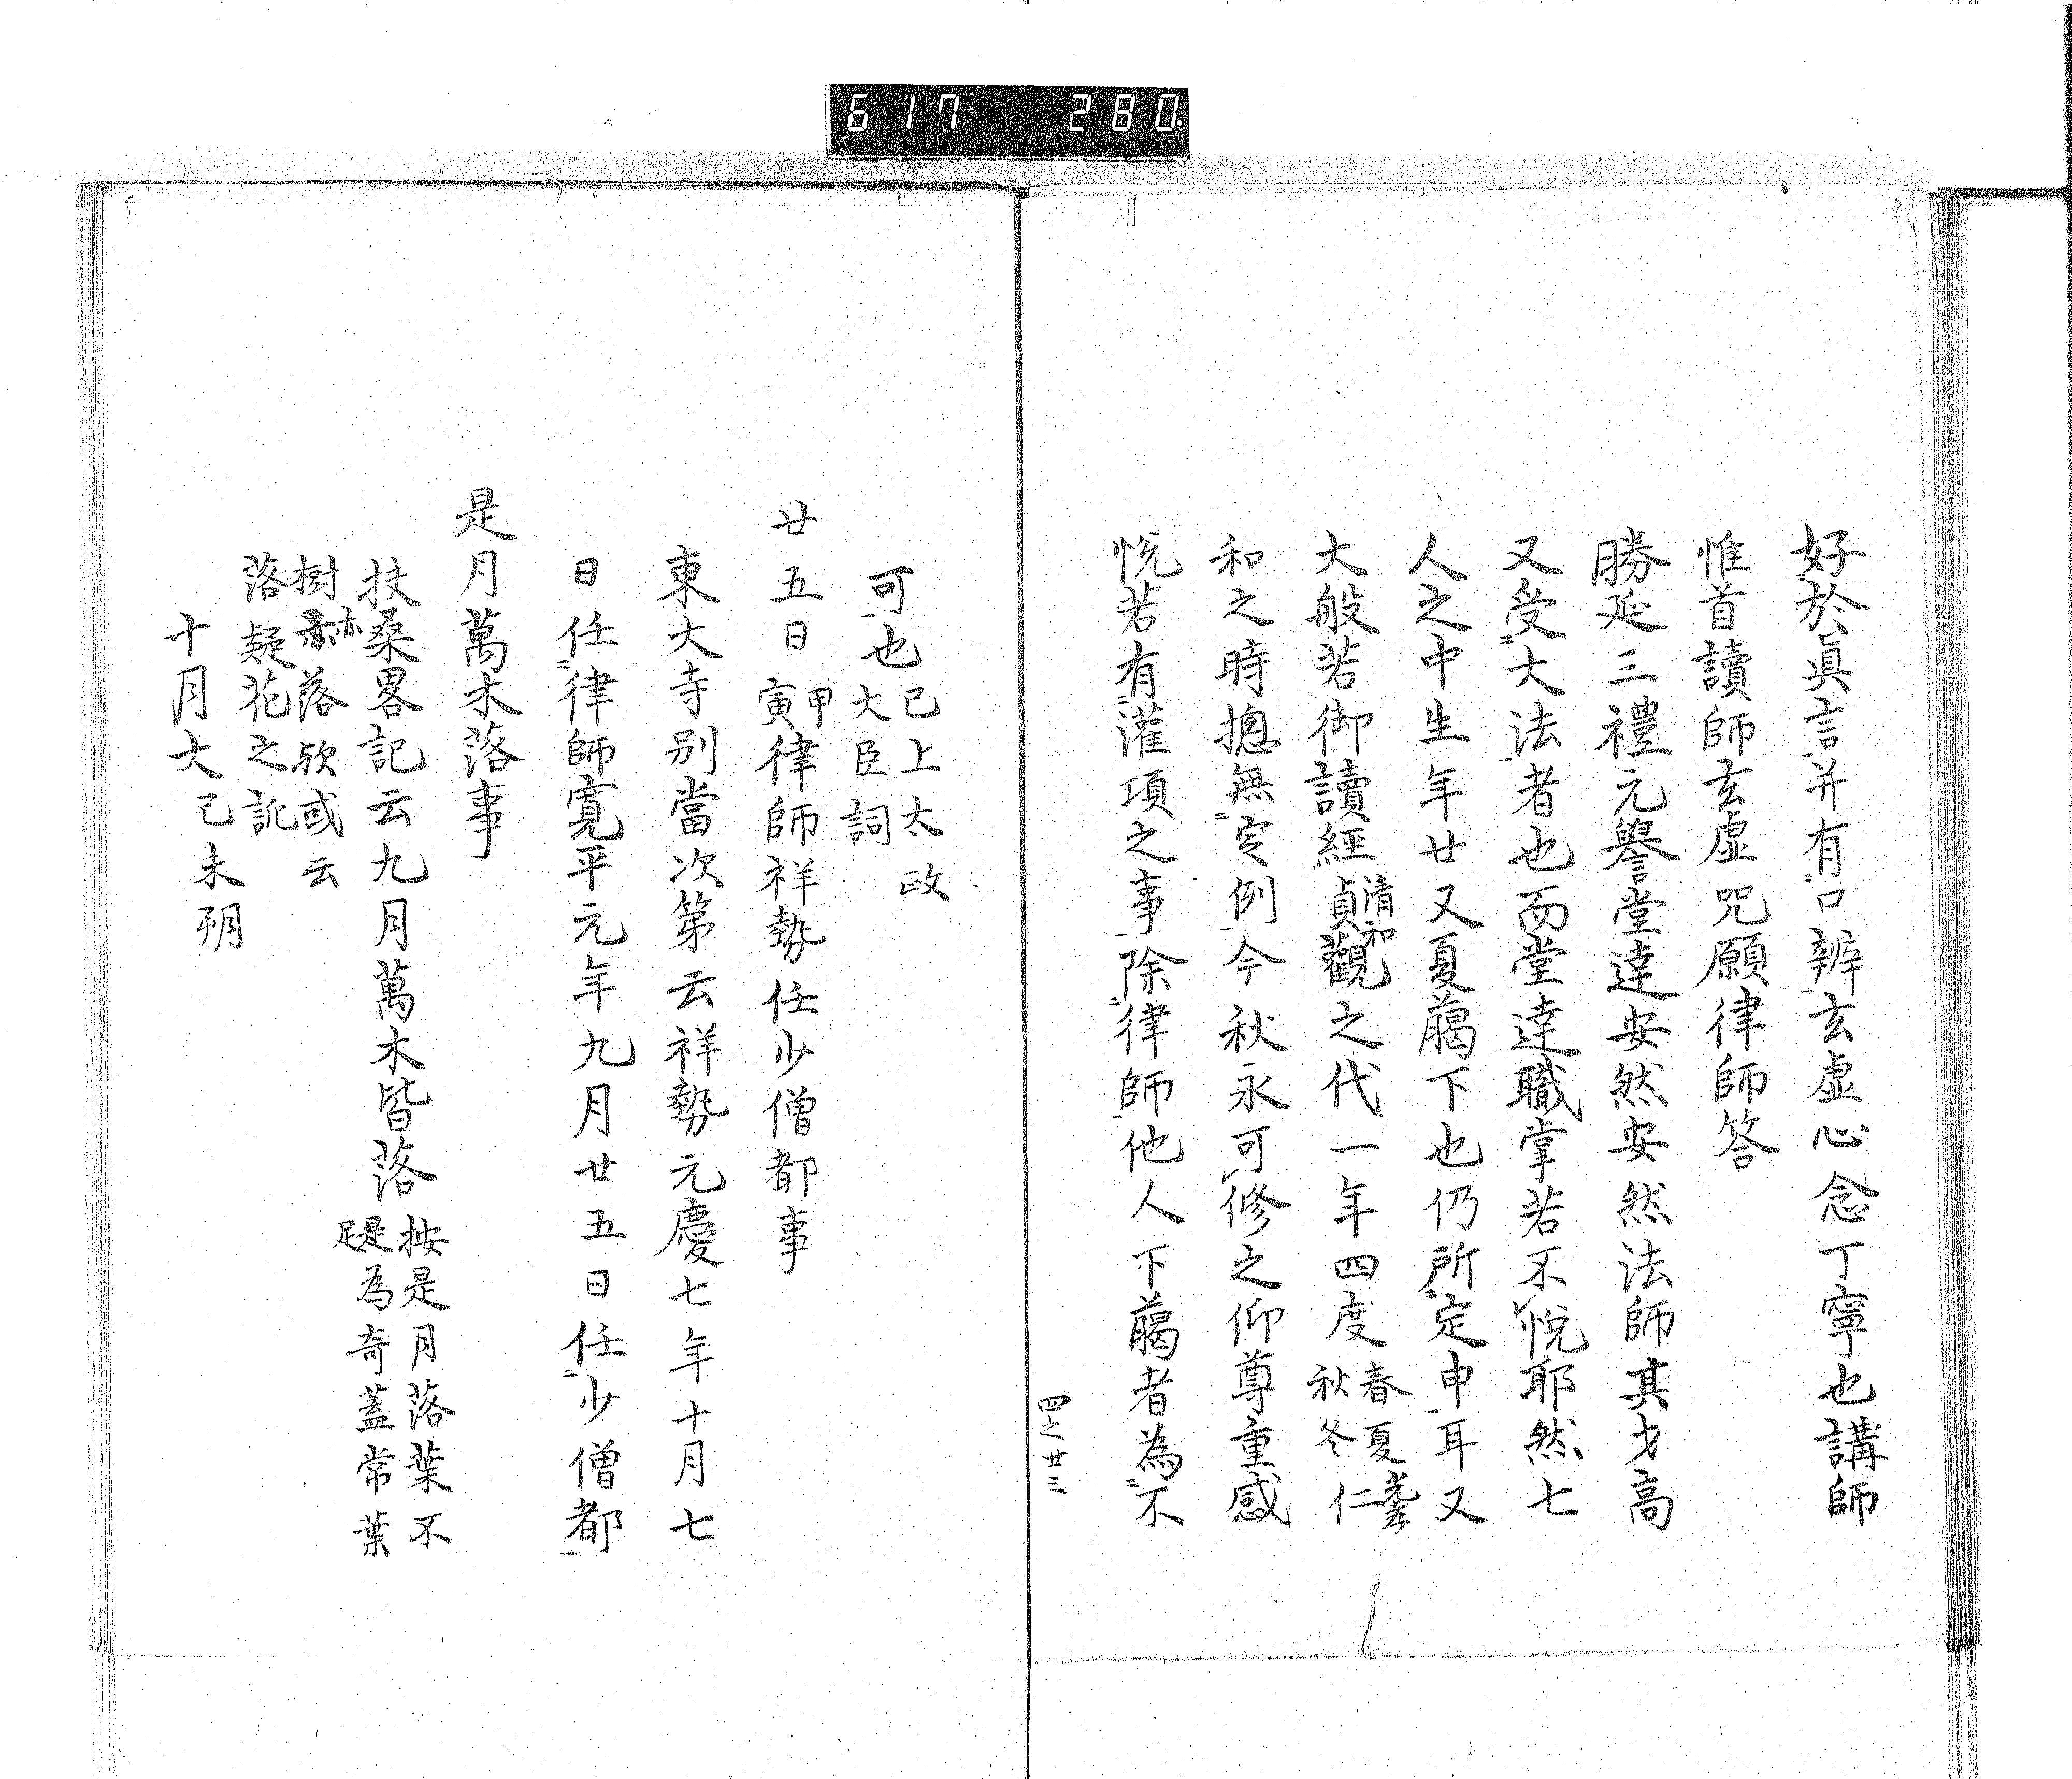 617 280.
好於眞言并有口辨玄虛心念丁寧也講師
惟首讀師玄虛咒願律師答
勝延三禮元譽堂達安然安然法師其才高
又受大法者也而堂達職掌若不悅耶然七
人之中生年廿又夏﨟下也仍所定申耳又
大般若御讀經貞觀清和之代一年四度春夏秋冬仁
和之時摠無定例今秋永可修之仰尊重感
悅若有灌項之事除律師他人下﨟者為不
四之廿三
可也已上太政大臣詞
廿五日甲寅律師祥勢任少僧都事
東大寺別當次第云祥勢元慶七年十月七
日任律師寬平元年九月廿五日任少僧都
是月萬木落事
扶桑畧記云九月萬木皆落按是月落葉不
是足為奇蓋常葉
樹赤亦落歟或云
落疑花之訛
十月大己未朔